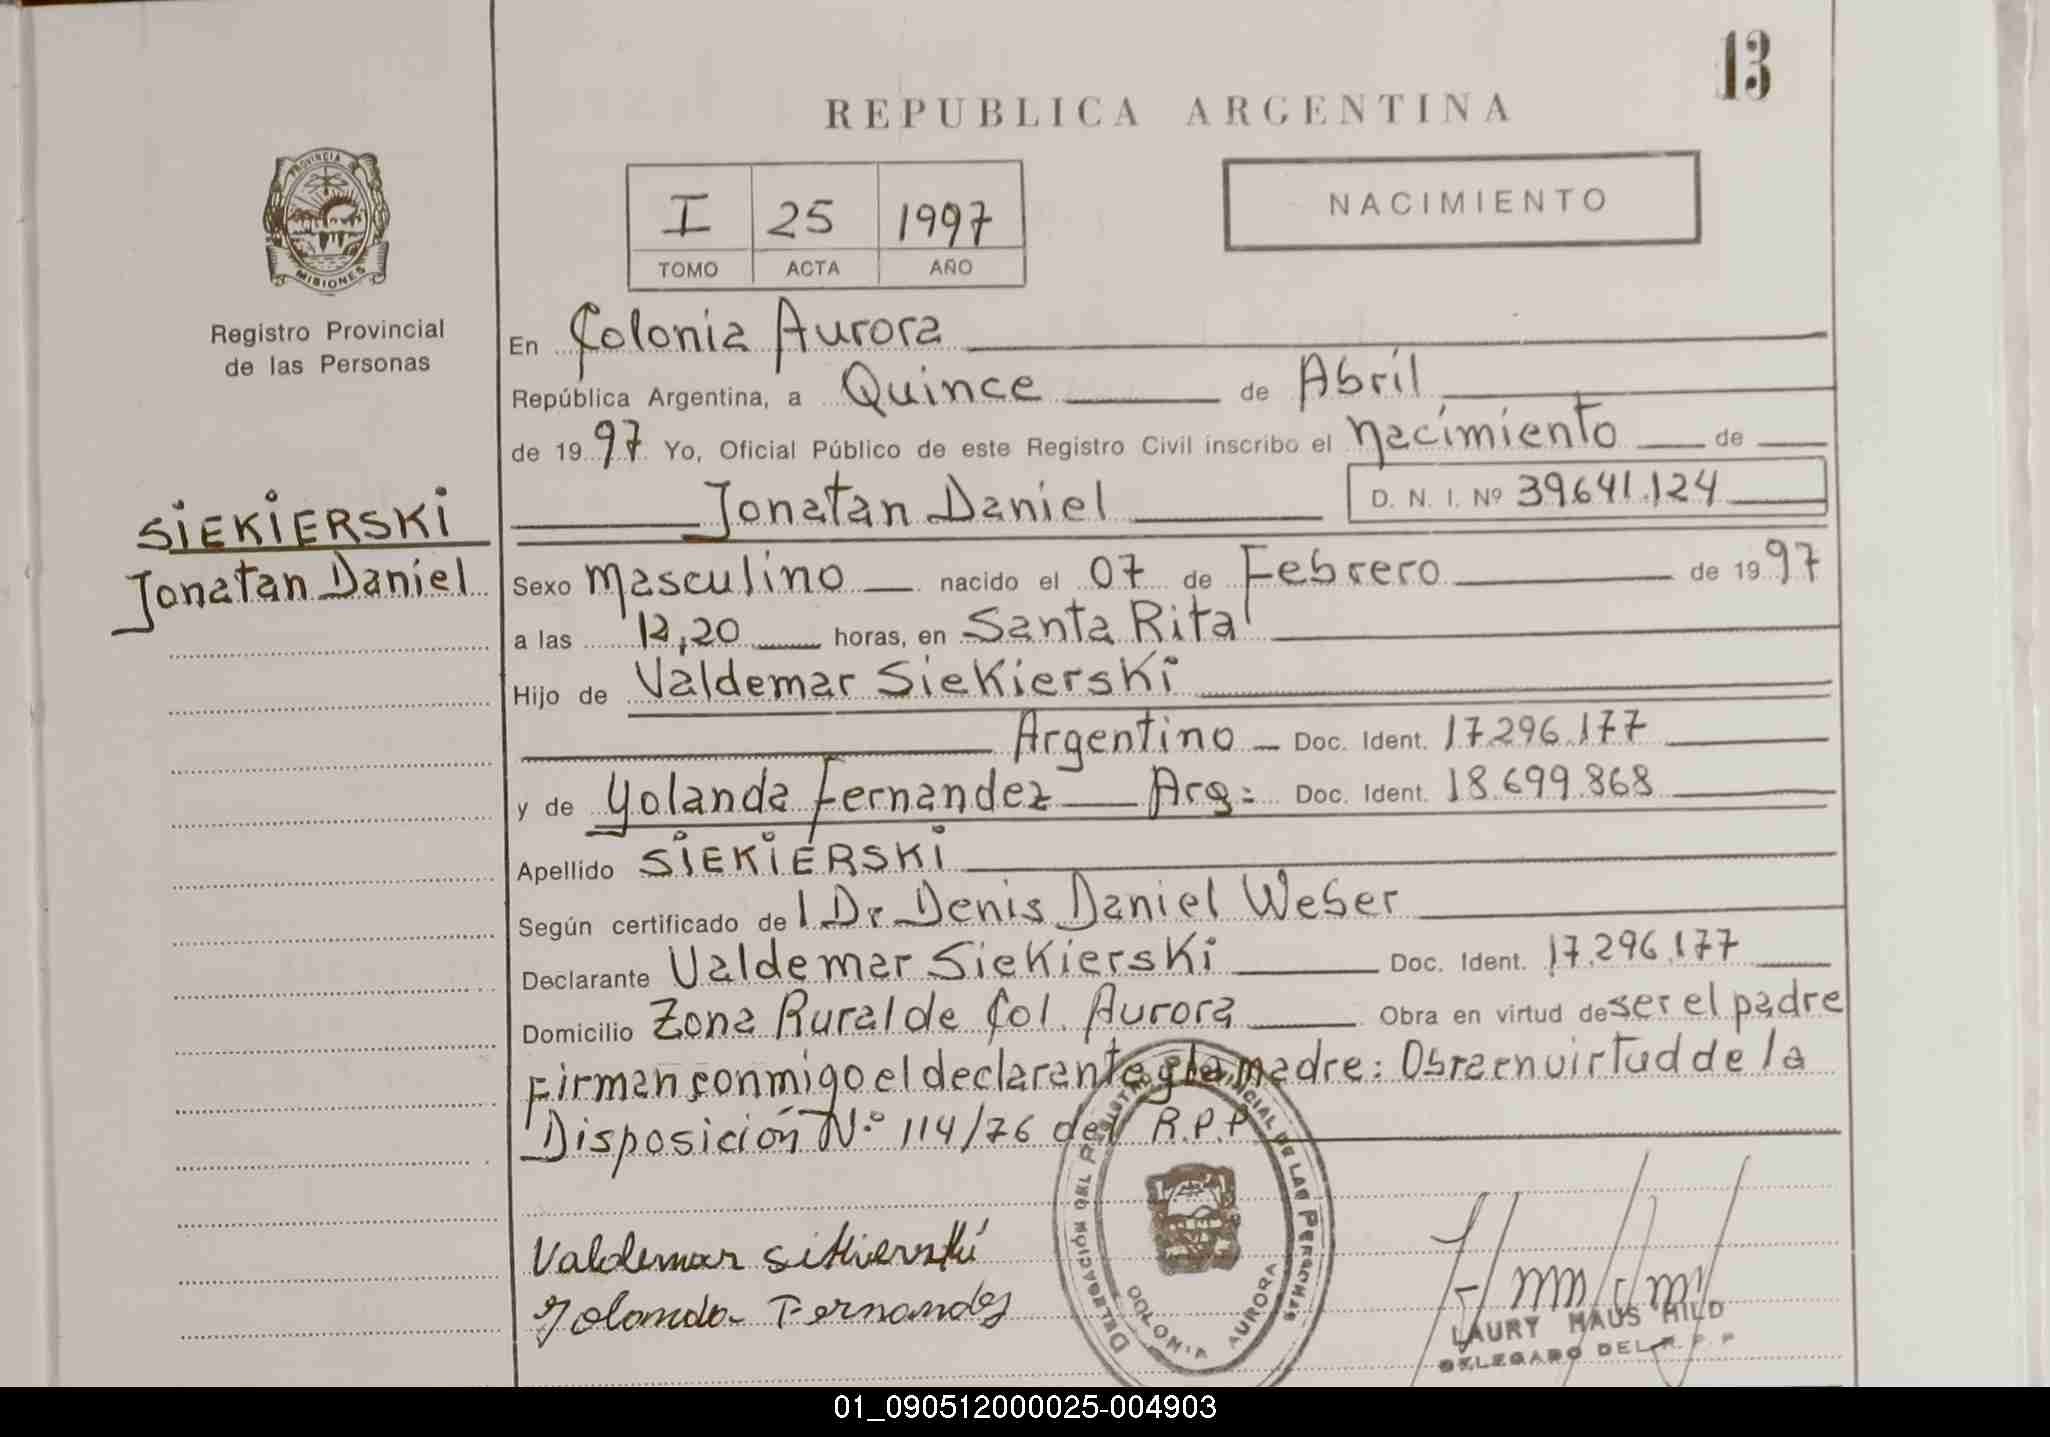 13
REPUBLICA ARGENTINA
I 25 1997
TOMO ACTA AÑO
NACIMIENTO
PROVINCIA DE
MISIONES
Registro Provincial
de las Personas
SIEKIERSKI
Jonatan Daniel
En Colonia Aurora
República Argentina, a Quince de Abríl
de 1997 Yo, Oficial Público de este Registro Civil inscribo el nacimiento de
Jonatan Daniel D. N. I. Nº 39.641.124
Sexo masculino nacido el 07 de Febrero de 1997
a las 12,20 horas, en Santa Rita
Hijo de Valdemar Siekierski
Argentino Doc. Ident. 17.296.177
y de Yolanda Fernandez Arg: Doc. Ident. 18.699.868
Apellido SIEKIERSKI
Según certificado de l Dr Denis Daniel Weber
Declarante Valdemar Siekierski Doc. Ident. 17.296.177
Domicilio Zona Rural de Col. Aurora Obra en virtud de ser el padre
Firman conmigo el declarante y la madre: Obra en virtud de la
Disposición N.º 114/76 del R.P.P
DELEGACIÓN DEL REGISTRO PROVINCIAL DE LAS PERSONAS
COLONIA AURORA
Valdemar
Yolanda Fernandez
LAURY HAUS HILD
DELEGADO DEL R. P. P
01_090512000025-004903